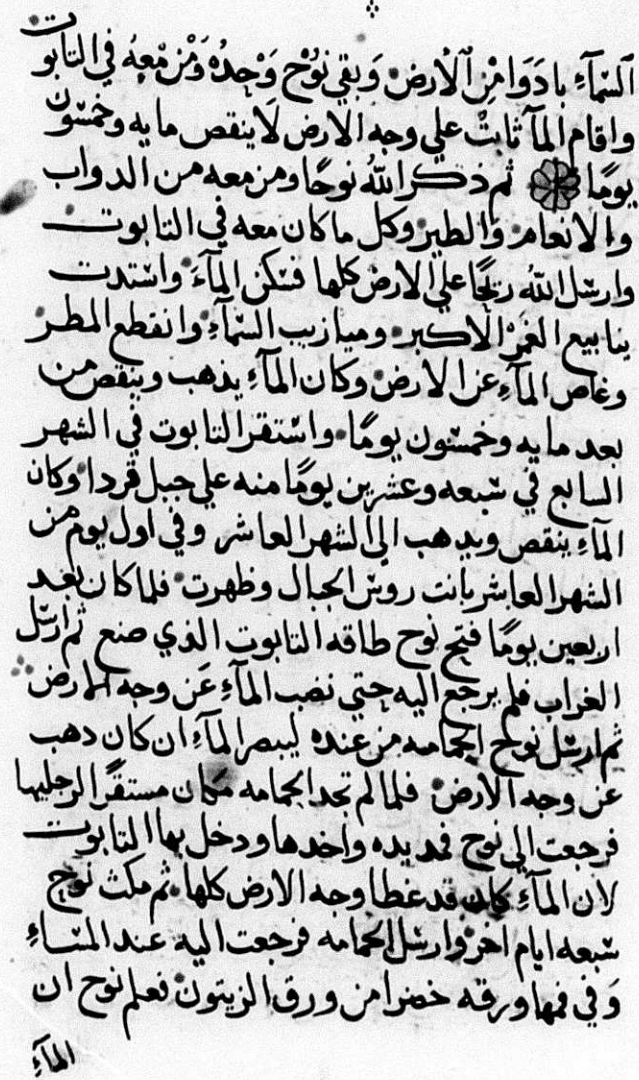 السَمآءِ بادَوَا مِْن اَلْارض وَبقي نوُح وَحِدُه وَمْن مَعِهُ في التابوت
واقام المآ ثابتٌ علي وجه الارض لَا ينقص مايه وخمسْون
يومًا ثم ذكر اللهُ نوحًا ومن معه من الدواب
والانعام والطير وكل ماكان معه في التابوت
وارسْل اللهُ ريحًا علي الارض كلها فسْكن المآءَ واسْتدت
ينابيع الغمْر الاكبر وميازيب السْمآءِ وانقطع المطر
وغاص المآءِ عن الارض وكان المآءِ يذهب وينقص من
بعد مايه وخمسْون يومًا واسْتقر التابوت في الشهر
السابع في سْبعه وعشرين يومًا منه علي جبل قردا وكان
المآءِ ينقص ويدهب الي الشهر العاشر وفي اول يوم من
الشهر العاشر بانت روسْ الجبال وظهرت فلما كان بعد
اربعين يومًا فتح نوح طاقه التابوت الذي صنع ثم ارسْل
الغراب فلم يرجع اليه حتي نضب المآءِ عَن وجه الارض
ثم ارسْل نوح الحمامه من عنده ليبصر المآءِ ان كان دهب
عن وجه الارض فلما لم تجد الحمامه مكان مستقرًا لرجليها
فرجعت الي نوح فمد يده واخدها ودخل بها التابوت
لان المآءِ كان قد غطا وجه الارض كلها ثم مكث نوح
سْبعه ايام اخر وارسْل الحمامه فرجعت اليه عند المسْاءِ
وَفي فمها ورقه خضرا من ورق الزيتون فعلم نوح ان
المآءِ